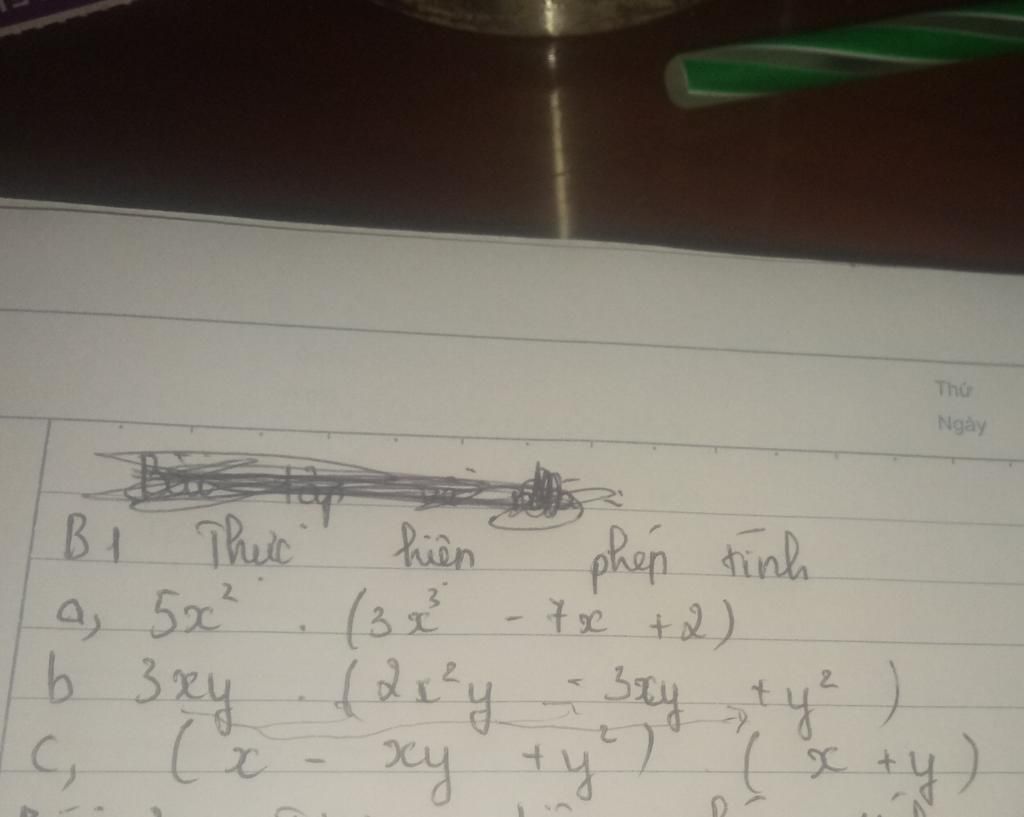 Thứ
Ngày
B1 Thực hiện phép tính
a, 5x² . (3x³ - 7x + 2)
b 3xy . (2x²y - 3xy + y²)
c, (x - xy + y²) (x + y)